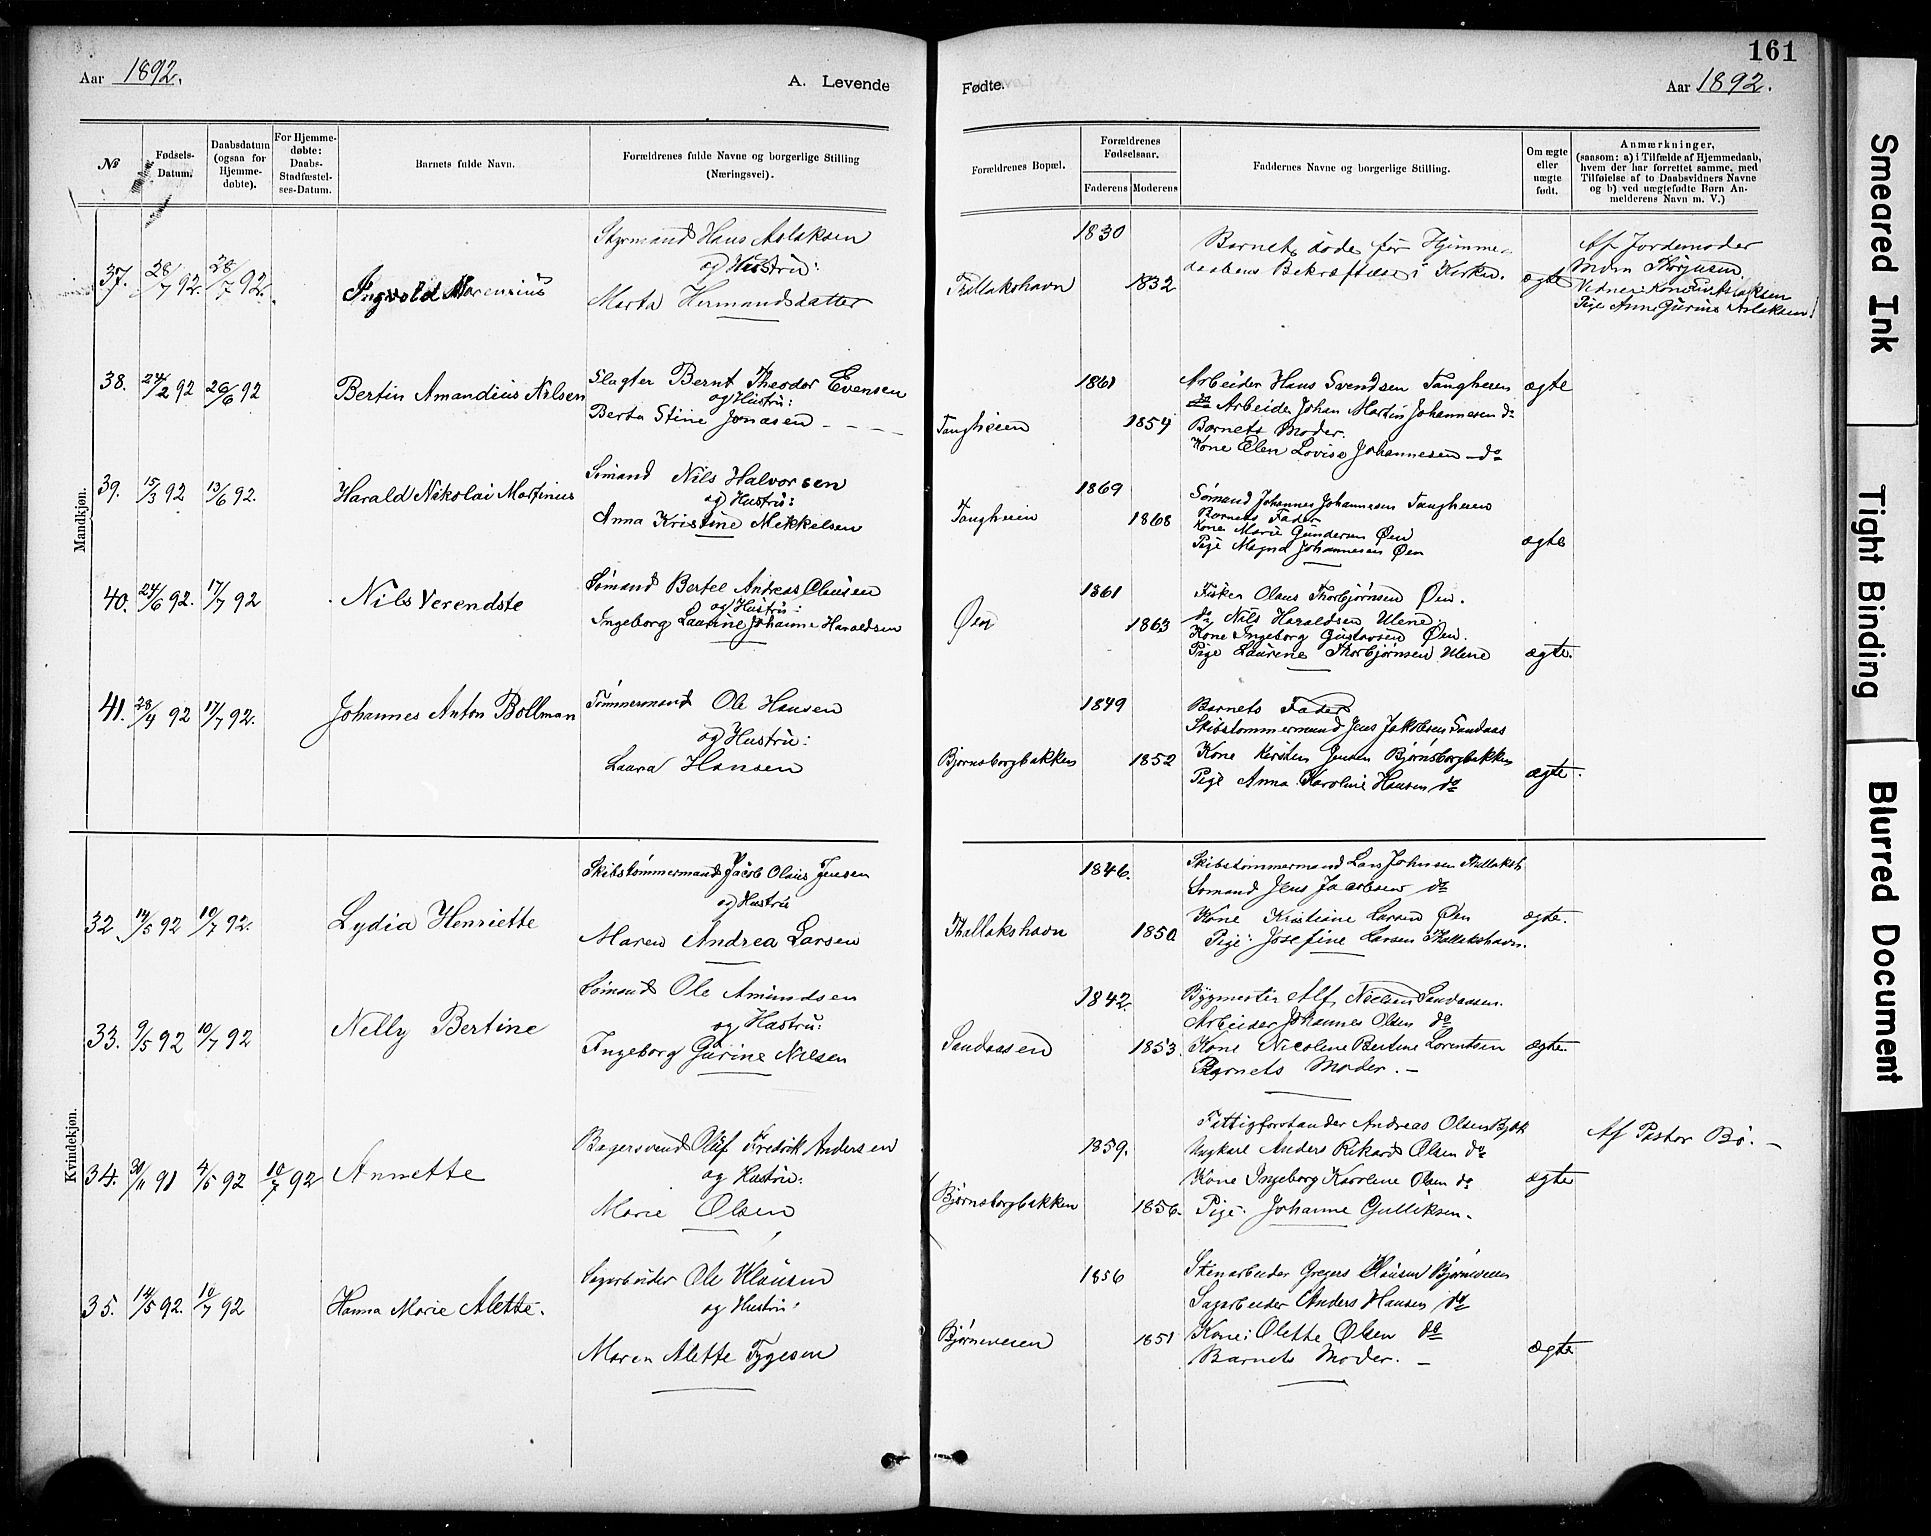 161
Aar 1892.
A. Levende
Fødte.
Aar 1892.
No
Fødsels-Datum.
Daabsdatum (ogsaa for Hjemmedøbte).
For Hjemmedøbte: Daabs-Stadfæstelses-Datum.
Barnets fulde Navn.
Forældrenes fulde Navne og borgerlige Stilling (Næringsvei).
Forældrenes Bopæl.
Forældrenes Fødselsaar.
Faderens Moderens
Faddernes Navne og borgerlige Stilling.
Om ægte eller uægte født.
Anmærkninger,
(saasom: a) i Tilfælde af Hjemmedaab, hvem der har forrettet samme, med Tilføielse af to Daabsvidners Navne og b) ved uægtefødte Børn Anmelderens Navn m. V.)
Mandkjøn.
37. 28/7 92. 28/7 92. Ingvold Marensius
Styrmand Hans Aslaksen
og Hustru:
Marta Hermandsdatter
Thllakshavn
1830
1832
Barnet døde før Hjemme-
daabens Bekræftelse i Kirken.
ægte
Af Jordemoder
Vidner: Kone
Pige Anne Gurine Aslaksen
38. 24/2 92 26/6 92 Bertin Amandius Nilsen
Slagter Bernt Theodor Evensen
og Hustru:
Berta Stine Jonasen
Tangheien
1861
1854
Arbeider Hans Svendsen Tangheien
do Arbeider Johan Martin Johannesen do
Barnets Moder.
Kone Elen Lovise Johannesen do
ægte
39. 15/3 92 13/6 92. Harald Nikolai Martinius
Sømand Nils Halvorsen
og Hustru:
Anna Kristine Mikkelsen
Tangheien
1869
1868
Sømand Johannes Johannesen Tangheien
Barnets Fader
Kone Marie Gundersen Øen
Pige Magna Johannesen Øen
ægte
40. 24/6 92. 17/7 92 Nils Verendste
Sømand Bertel Andreas Clausen
og Hustru:
Ingeborg Laurine Johanne Haraldsen
Øen
1861
1863
Fisker Olaus Thorbjørnsen Øen.
do Nils Haraldsen Ulene.
Kone Ingeborg Gustavsen Øen.
Pige Laurene Thorbjørnsen Ulene
ægte.
41. 28/4 92 17/7 92. Johannes Anton Bollman
Tømmermand Ole Hansen
og Hustru:
Laura Hansen
Bjørnsborgbakken
1849
1852
Barnets Fader
Skibstømmermand Jens Jakobsen Sandaas
Kone Kirsten Jensen Bjørnsborgbakken
Pige Anna Karoline Hansen do
ægte.
Kvindekjøn.
32 14/5 92 10/7 92. Lydia Henriette
Skibstømmermand Jacob Olaus Jensen
og Hustru
Maren Andrea Larsen
Thallakshavn
1846.
1850
Skibstømmermand Lars Johnsen Thallaksh.
Sømand Jens Jacobsen do
Kone Kristiane Larsen Øen
Pige: Josefine Larsen Thallakshavn.
ægte.
33. 9/5 92 10/7 92 Nelly Bertine
Sømand Ole Amundsen
og Hustru:
Ingeborg Gurine Nilsen
Sandaasen
1842.
1853.
Bygmester Alf Nielsen Sandaasen.
Arbeider Johannes Olsen do
Kone Nicoline Bertine Lorentsen
Barnets Moder. —
ægte.
34. 30/11 91 4/5 92 10/7 92 Annette
Bagersvend Oluf Fredrik Andersen
og Hustru:
Marie Olsen
Bjørnsborgbakken
1859.
1856.
Fattigforstander Andreas Olsen
Ungkarl Anders Rikard Olsen do
Kone Ingeborg Karoline Olsen do
Pige: Johanne Gulliksen.
ægte
Af Pastor Bø. —
35. 14/5 92. 10/7 92 Hanna Marie Alette.
Sagarbeider Ole Klausen
og Hustru:
Maren Alette Tygesen
Bjørneveien
1856
1851
Stenarbeider Gregers Klausen Bjørneveien
Sagarbeider Anders Hansen do
Kone: Olette Olsen do
Barnets Moder. —
ægte
Smeared Ink
Tight Binding
Blurred Document